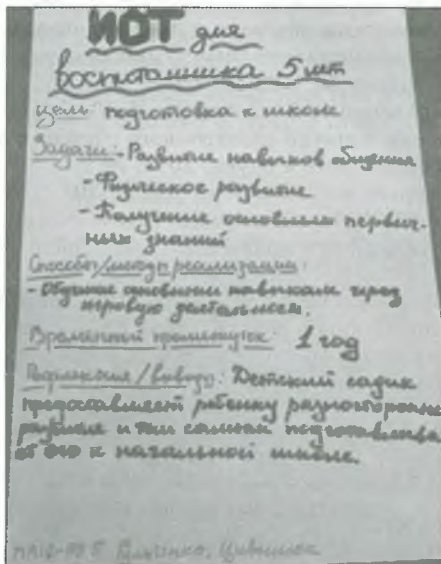 ИОТ для
воспитанника 5 лет
Цель: подготовка к школе
Задачи: - Развитие навыков общения
- Физическое развитие
- Получение основных первич-
ных знаний
Способы/методы реализации:
- Обучение основным навыкам через
игровую деятельность.
Временный промежуток: 1 год
/выводы: Детский садик
предоставляет ребенку разностороннее
развитие и тем самым подготавлива
ет его к начальной школе.